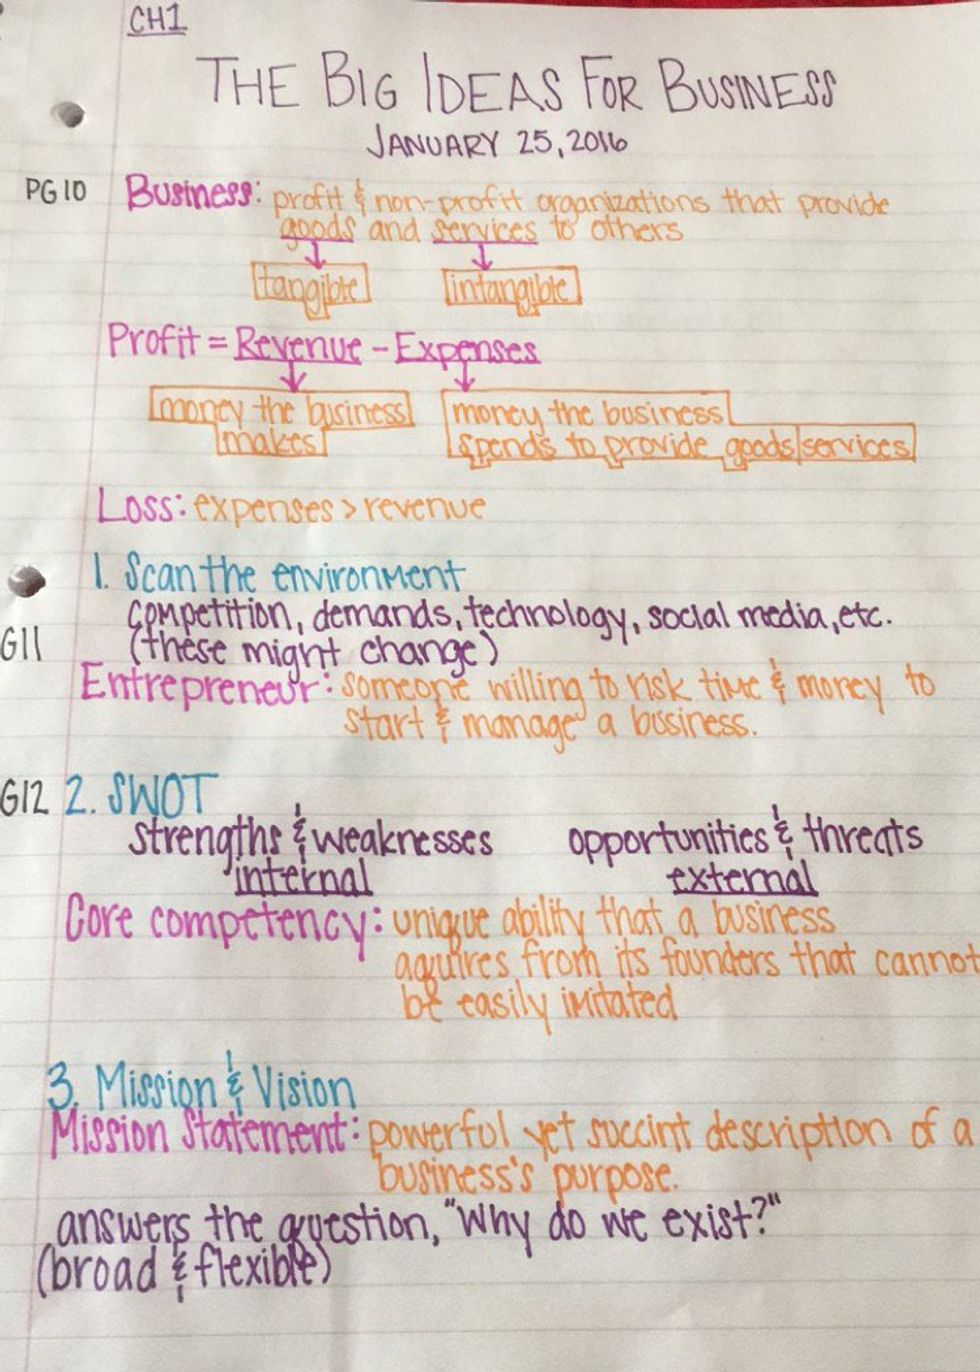 CH1
THE BIG IDEAS FOR BUSINESS
JANUARY 25, 2016
PG10 Business: profit & non-profit organizations that provide
goods and services to others
tangible intangible
Profit = Revenue - Expenses
money the business money the business
makes spends to provide goods/services
Loss: expenses > revenue
1. Scan the environment
competition, demands, technology, social media, etc.
G11 (these might change)
Entrepreneur: someone willing to risk time & money to
start & manage a business.
G12 2. SWOT
strengths & weaknesses opportunities & threats
internal external
Core competency: unique ability that a business
aquires from its founders that cannot
be easily imitated
3. Mission & Vision
Mission Statement: powerful yet succint description of a
business's purpose.
answers the question, "Why do we exist?"
(broad & flexible)